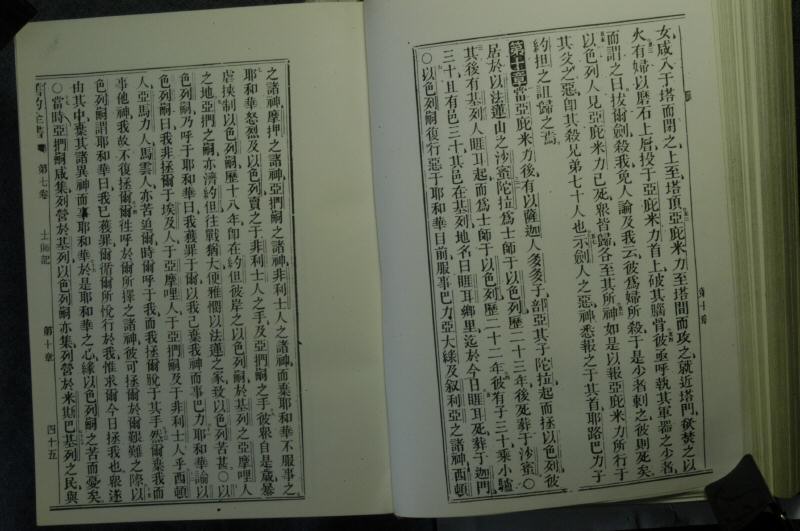 女咸入于塔而閉之上至塔頂亞庇米力至塔間而攻之就近塔門欲焚之以
火有婦以磨石上層投于亞庇米力首上破其腦骨彼亟呼執其軍器之少者
而謂之曰拔爾劍殺我免人論及我云彼為婦所殺于是少者刺之彼則死矣
以色列人見亞庇米力已死眾皆歸各至其所神如是以報亞庇米力所行于
其父之惡卽其殺兄弟七十人也示劍人之惡神悉報之于其首耶路巴力子
約担之詛歸之焉
第十章當亞庇米力後有以薩迦人多多子部亞其子陀拉起而拯以色列彼
居於以法蓮山之沙蜜陀拉為士師于以色列歷二十三年後死葬于沙蜜〇
其後有基列人睚耳起而為士師于以色列歷二十二年彼有子三十乘小驢
三十且有邑三十其邑在基列地名曰睚耳鄉里迄於今日睚耳死葬于迦門
〇以色列嗣復行惡于耶和華目前服事巴力亞大綠及叙利亞之諸神西頓
第十章
之諸神摩押之諸神亞捫嗣之諸神非利士人之諸神而棄耶和華不服事之
耶和華怒烈及以色列賣之于非利士人之手及亞捫嗣之手彼眾自是歲暴
虐挾制以色列嗣歷十八年卽在約但彼岸之以色列嗣於基列之亞摩哩人
之地亞捫之嗣亦濟約但往戰猶大便雅憫以法蓮之家致以色列苦甚〇以
色列嗣乃呼于耶和華曰我獲罪于爾以我已棄我神而事巴力耶和華諭以
色列嗣曰我非拯爾于埃及人于亞摩哩人于亞捫嗣及于非利士人乎西頓
人亞馬力人馬雲人亦苦迫爾時爾呼于我而我拯爾脫于其手然爾棄我而
事他神我故不復拯爾爾往呼於爾所擇之諸神彼可拯爾於爾艱難之際以
色列嗣謂耶和華曰我已獲罪爾循爾所悅行於我惟求爾今日拯我也眾遂
由其中棄其諸異神而事耶和華於是耶和華之心緣以色列嗣之苦而憂矣
〇當時亞捫嗣咸集列營於基列以色列嗣亦集列營於米斯巴基列之民與
舊約全書 第七卷 士師記 第十章 四十五